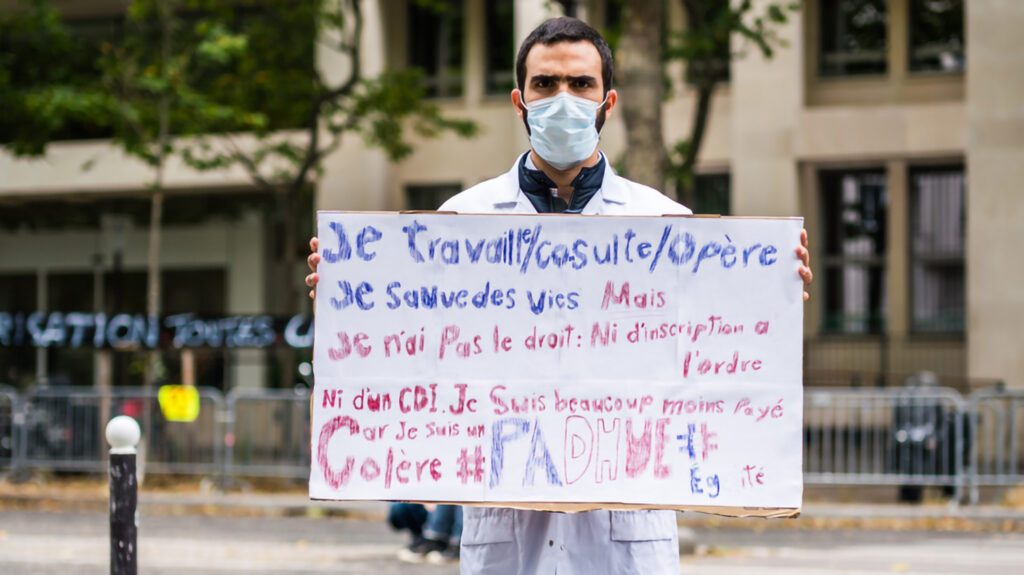 RISATION TOUTES
Je travaille/cosulte/opère
Je sauve des vies Mais
Je n'ai Pas le droit: Ni d'inscription a
l'ordre
Ni d'un CDI. Je Suis beaucoup moins Payé
Car Je suis un
Colère #PADHUE #
Eg ité